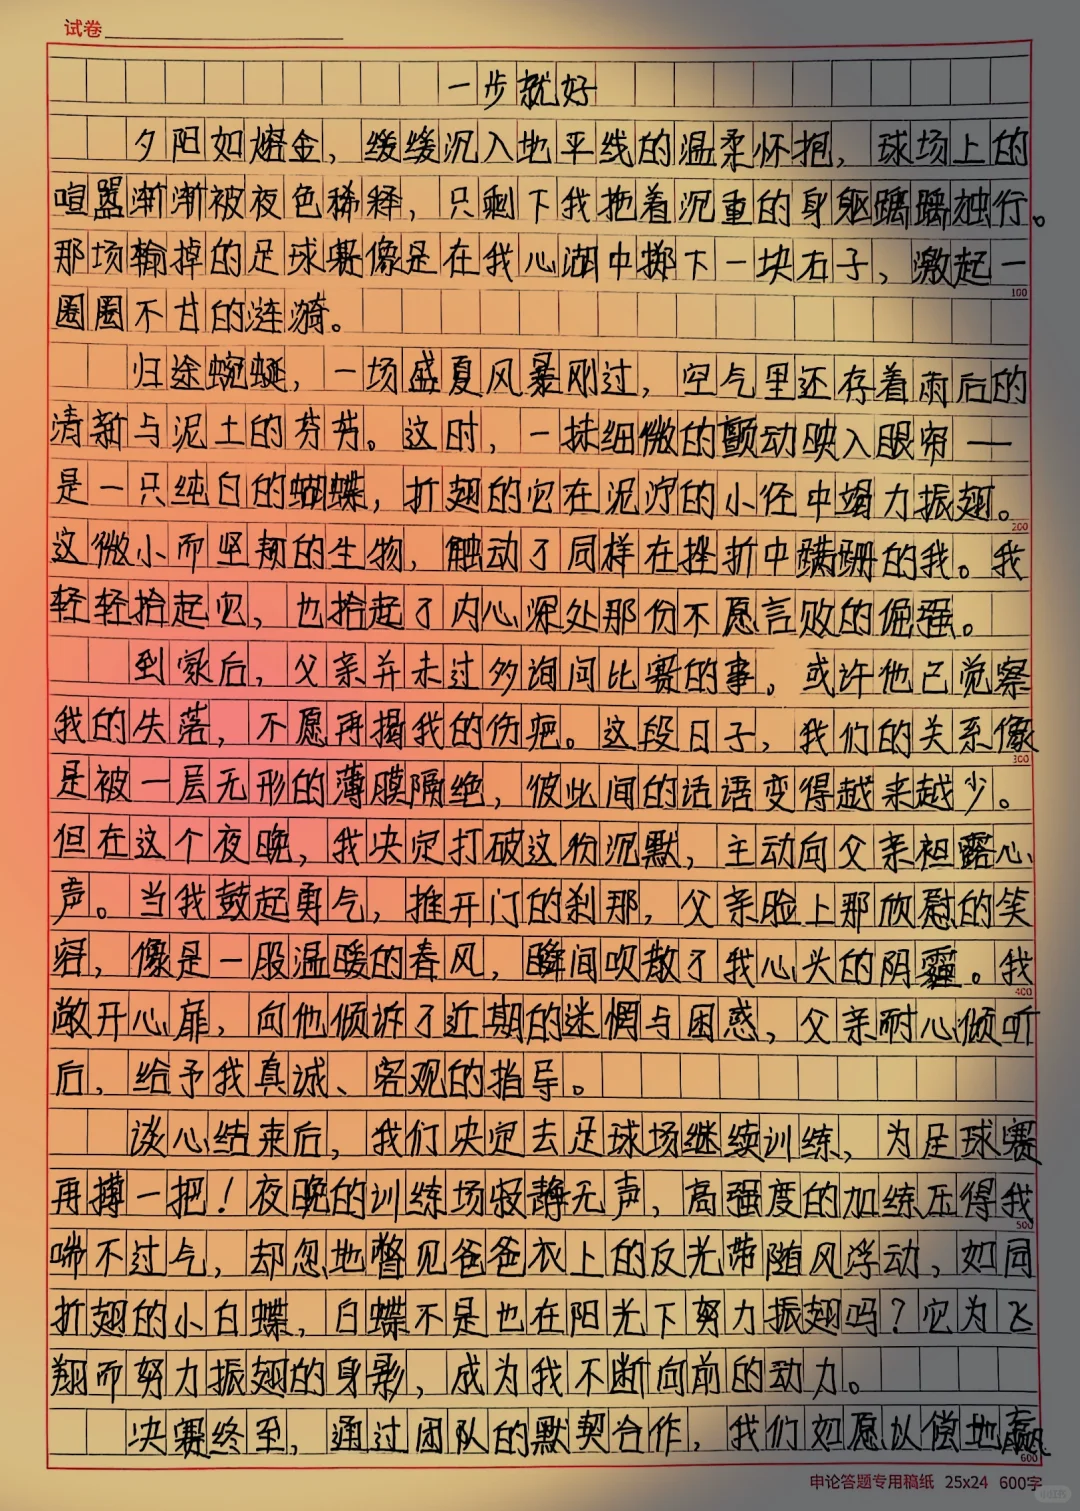 试卷
一步就好
夕阳如熔金，缓缓沉入地平线的温柔怀抱，球场上的
喧嚣渐渐被夜色稀释，只剩下我拖着沉重的身躯踽踽独行。
那场输掉的足球赛像是在我心湖中掷下一块石子，激起一
100
圈圈不甘的涟漪。
归途蜿蜒，一场盛夏风暴刚过，空气里还存着雨后的
清新与泥土的芬芳。这时，一抹细微的颤动映入眼帘——
是一只纯白的蝴蝶，折翅的它在泥泞的小径中竭力振翅。
200
这微小而坚韧的生物，触动了同样在挫折中蹒跚的我。我
轻轻拾起它，也拾起了内心深处那份不愿言败的倔强。
到家后，父亲并未过多询问比赛的事。或许他已觉察
我的失落，不愿再揭我的伤疤。这段日子，我们的关系像
300
是被一层无形的薄膜隔绝，彼此间的话语变得越来越少。
但在这个夜晚，我决定打破这份沉默，主动向父亲袒露心
声。当我鼓起勇气，推开门的刹那，父亲脸上那欣慰的笑
容，像是一股温暖的春风，瞬间吹散了我心头的阴霾。我
400
敞开心扉，向他倾诉了近期的迷惘与困惑，父亲耐心倾听
后，给予我真诚、客观的指导。
谈心结束后，我们决定去足球场继续训练，为足球赛
再搏一把！夜晚的训练场寂静无声，高强度的加练压得我
500
喘不过气，却忽地瞥见爸爸衣上的反光带随风浮动，如同
折翅的小白蝶，白蝶不是也在阳光下努力振翅吗？它为飞
翔而努力振翅的身影，成为我不断向前的动力。
决赛终至，通过团队的默契合作，我们如愿以偿地赢
600
申论答题专用稿纸 25x24 600字